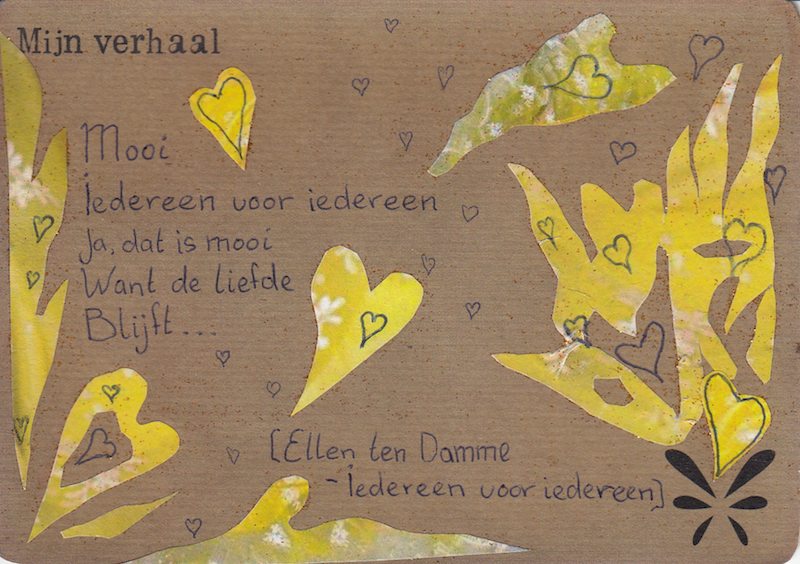 Mijn verhaal
Mooi
Iedereen voor iedereen
Ja, dat is mooi
Want de liefde
Blijft...
[Ellen ten Damme
- Iedereen voor iedereen]